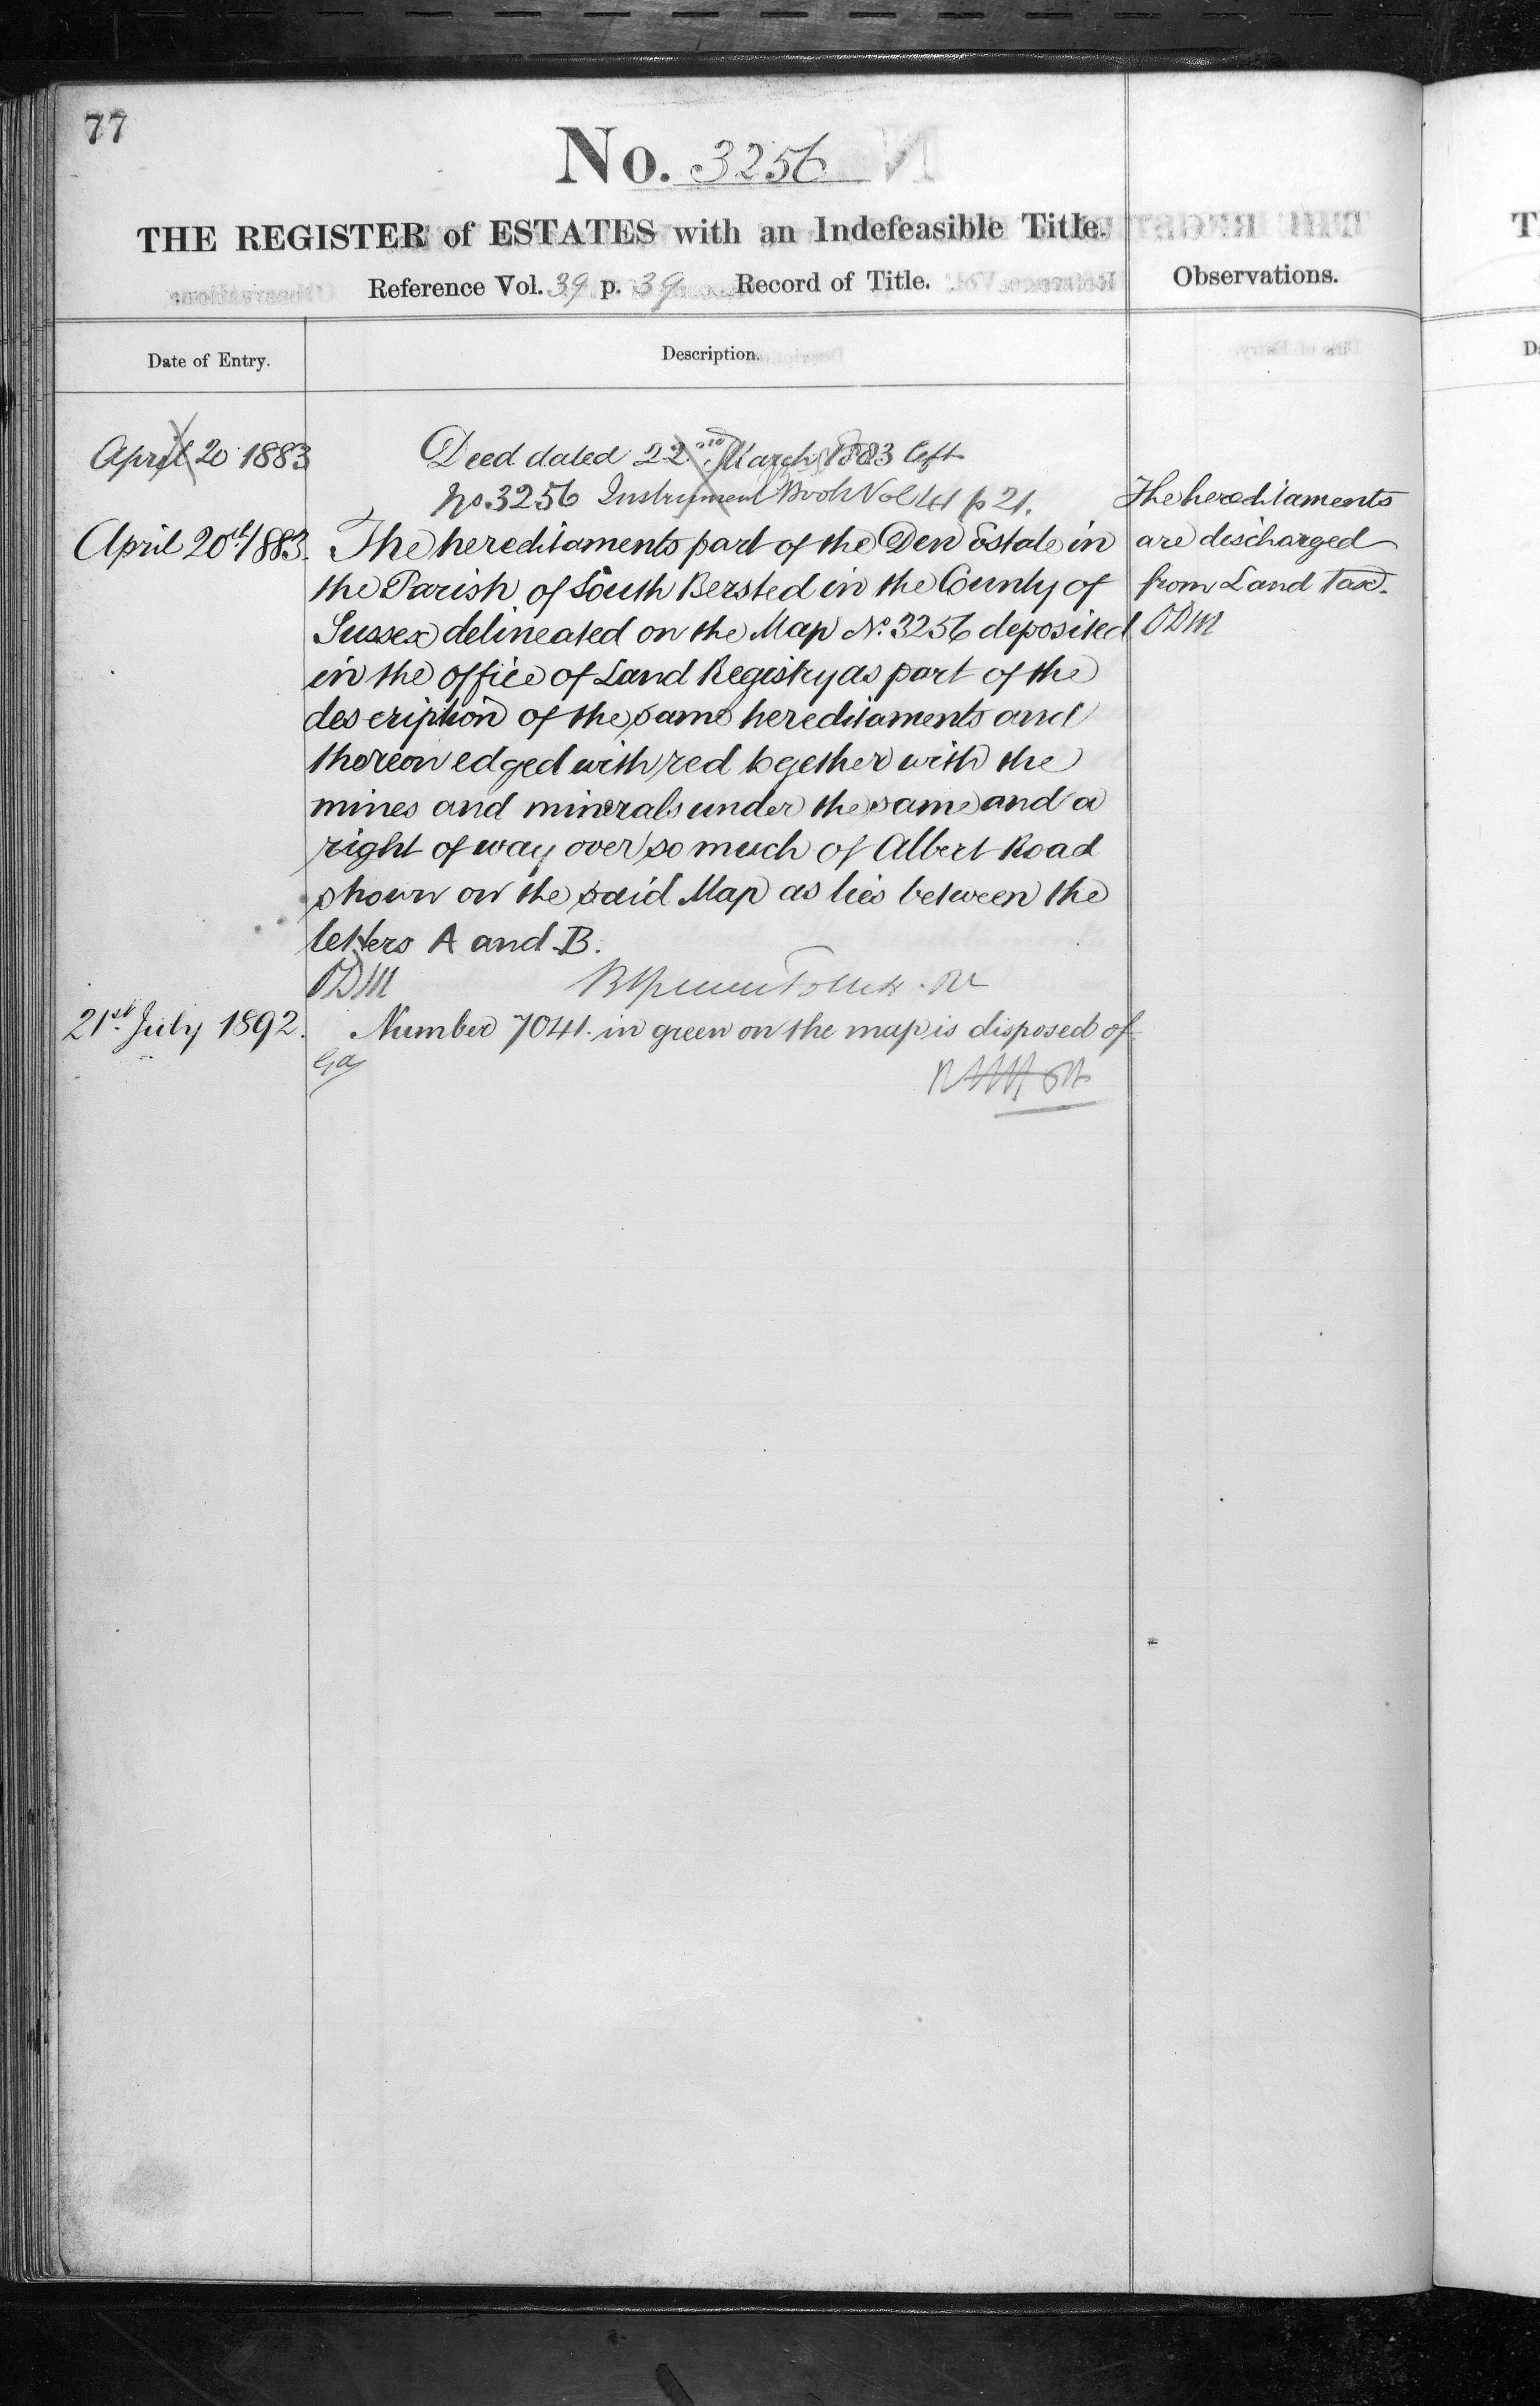 77
No. 3256
THE REGISTER of ESTATES with an Indefeasible Title.
Reference Vol. 39 p. 39 Record of Title.
Observations.
Date of Entry.
Description.
April 20 1883
Deed dated 22nd March 1883 left
No. 3256 Instrument Book Vol 14 p 21.
April 20th 1883.
The hereditaments part of the Den Estate in
the Parish of South Bersted in the County of
Sussex delineated on the Map No. 3256 deposited
in the office of Land Registry as part of the
description of the same hereditaments and
thereon edged with red together with the
mines and minerals under the same and a
right of way over so much of Albert Road
shown on the said Map as lies between the
letters A and B.
ODM
The hereditaments
are discharged
from Land Tax.
ODM
21st July 1892.
Number 7041 in green on the map is disposed of